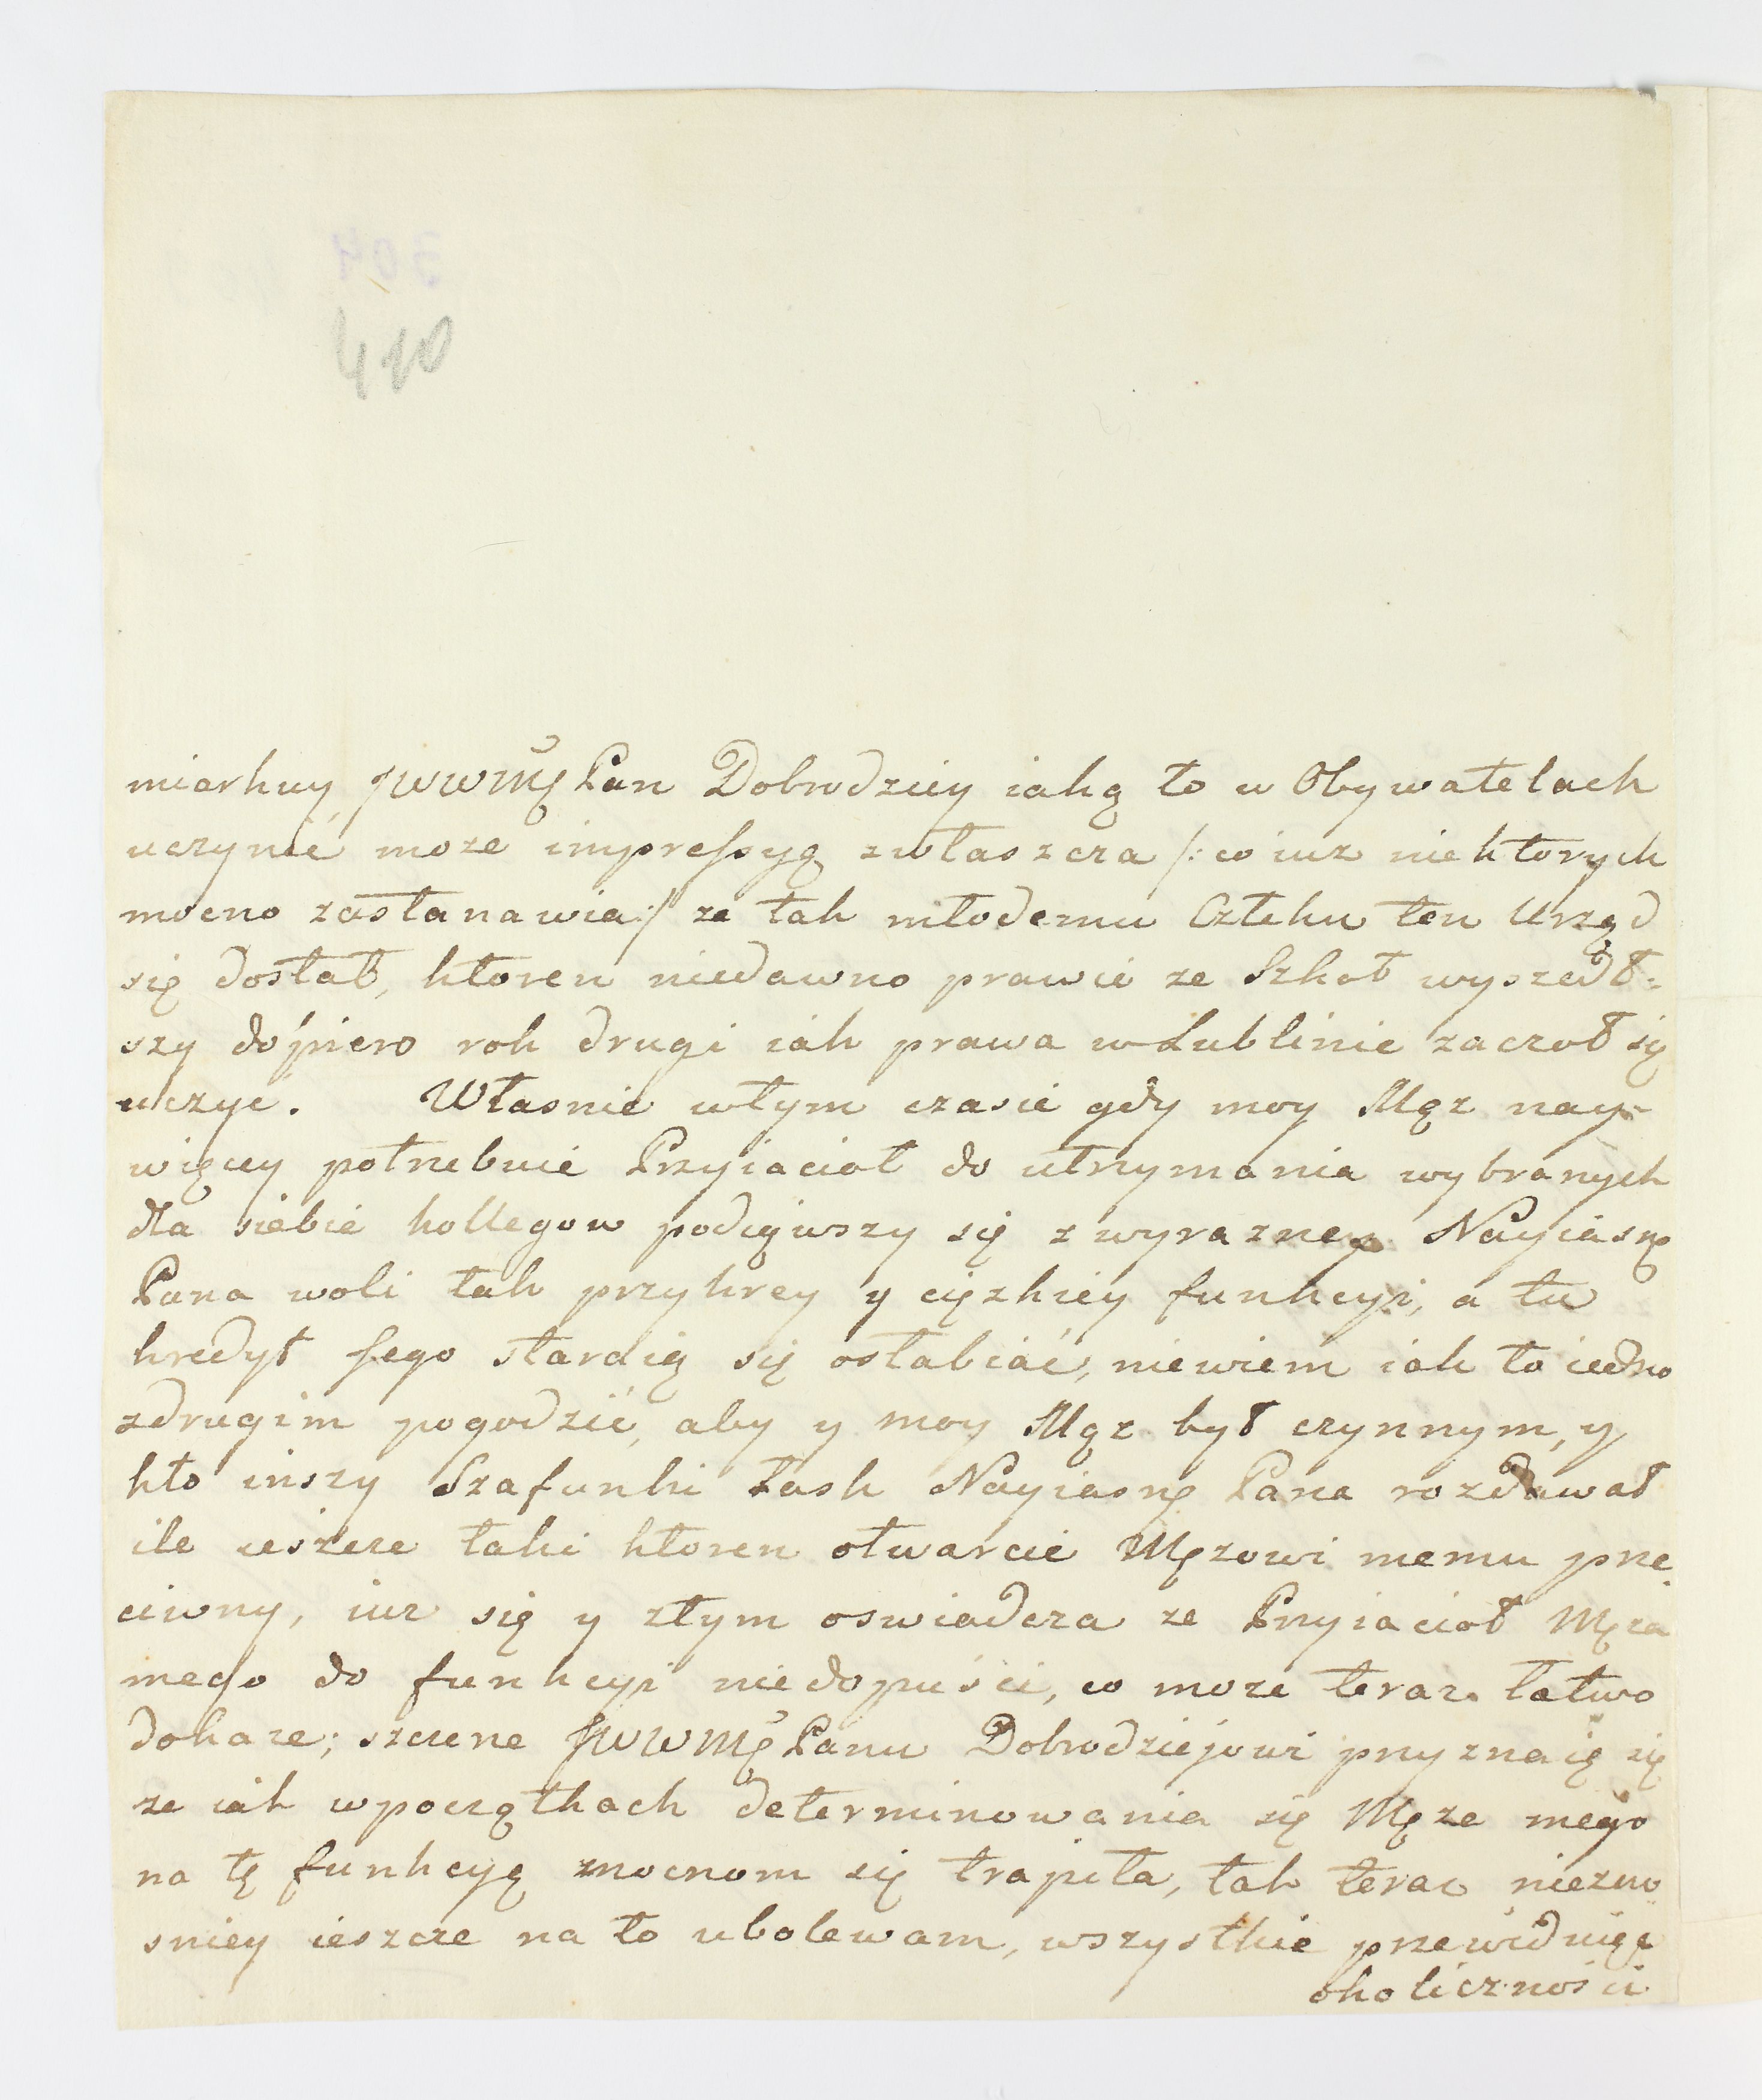 304
410
miarkuy JWWMę Pan Dobrodziey iaką to w Obywatelach
uczynić moze impressyą zwłaszcza /: co iuz niektorych
mocno zastanawia :/ ze tak młodemu Człeku ten Urząd
się dostał, ktoren niedawno prawie ze Szkoł wyszedł=
szy dopiero rok drugi iak prawa w Lublinie zaczoł się
uczyc. Własnie wtym czasie gdy moy Mąz nay-
więcey potrzebuie Przyiacioł do utrzymania wybranych
dla siebie kollegow podiąwszy się z wyrazney Nayiasnę
Pana woli tak przykrey y cięzkiey funkcyi, a tu
kredyt Jego staraią się osłabiać, niewiem iak to iedno
zdrugim pogodzić, aby y moy Mąz był czynnym, y
kto inszy Szafunki Łask Nayiasnę Pana rozdawał
ile ieszcze taki ktoren otwarcie Męzowi memu prze
ciwny, iuz się y ztym oswiadcza ze Przyiacioł Męza
mego do funkcyi niedopuści, co moze teraz łatwo
dokaze; szczerze JWWMę Panu Dobrodziejowi przyznaię się
ze iak wpoczątkach determinowania się Męza mego
na tę funkcyą mocnom się trapiła, tak teraz niezno
sniey ieszcze na to ubolewam, wszystkie przewiduięc
okoliczności